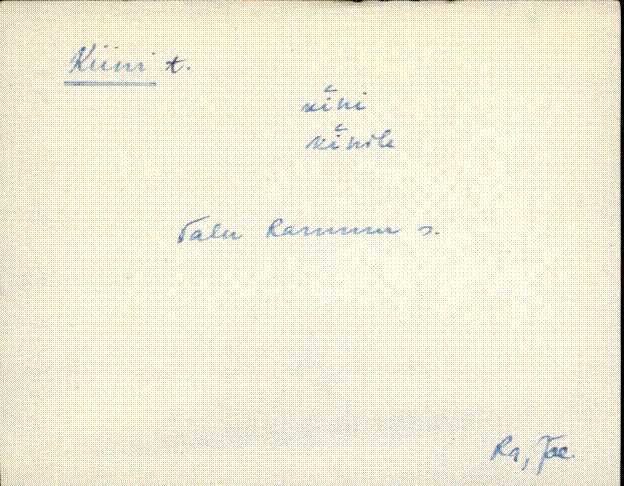 Kiini t.
kìni
kìnile
Talu Rammu s.
Ra, Joe